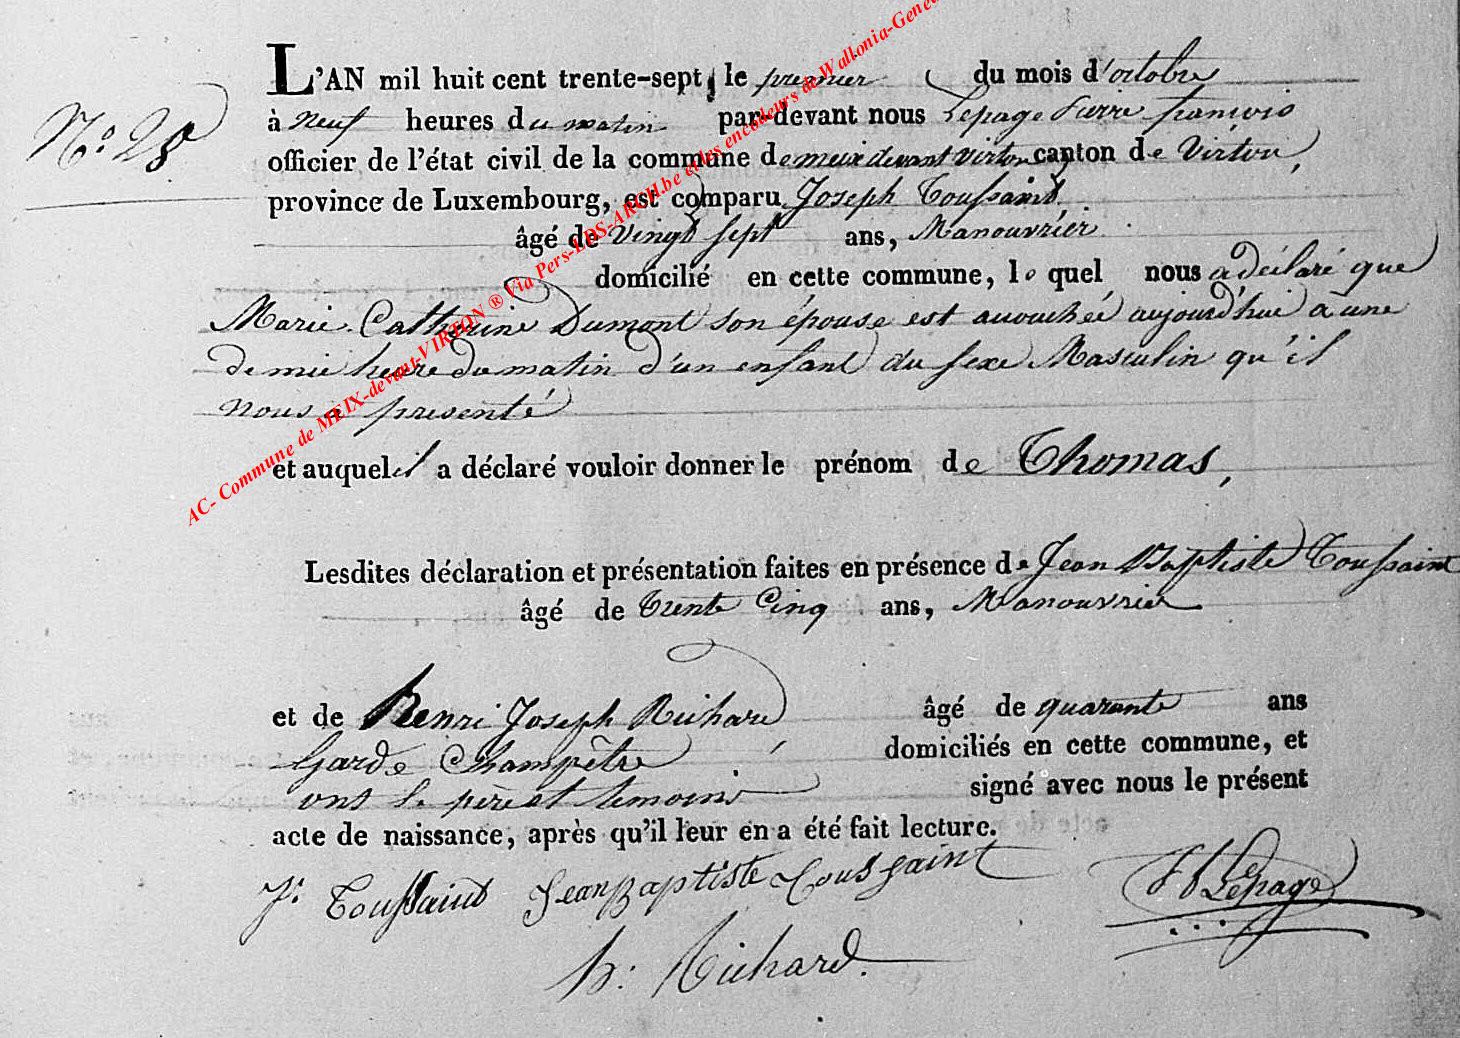 AC- Commune de MEIX-devant-VIRTON ® Via Pers-LDS-ARCH.be et les encodeurs de Wallonia-Genea
N.° 28
L'AN mil huit cent trente-sept, le premier du mois d'octobre
à neuf heures du matin par-devant nous Lepage Pierre françois
officier de l'état civil de la commune de meix devant virton canton de Virton,
province de Luxembourg, est comparu Joseph Toussaint,
âgé de Vingt sept ans, Manouvrier
domicilié en cette commune, le quel nous a déclaré que
Marie Catherine Dumont son épouse est accouchée aujourd'hui à une
demie heure du matin d'un enfant du sexe Masculin qu'il
nous a presenté
et auquel il a déclaré vouloir donner le prénom de Thomas,
Lesdites déclaration et présentation faites en présence de Jean Baptiste Toussaint
âgé de Trente Cinq ans, Manouvrier
et de Henri Joseph Richard âgé de quarante ans
Garde Champêtre domiciliés en cette commune, et
ont le père et temoins signé avec nous le présent
acte de naissance, après qu'il leur en a été fait lecture.
J. Toussaint Jean Baptiste Toussaint Lepage
h: Richard.